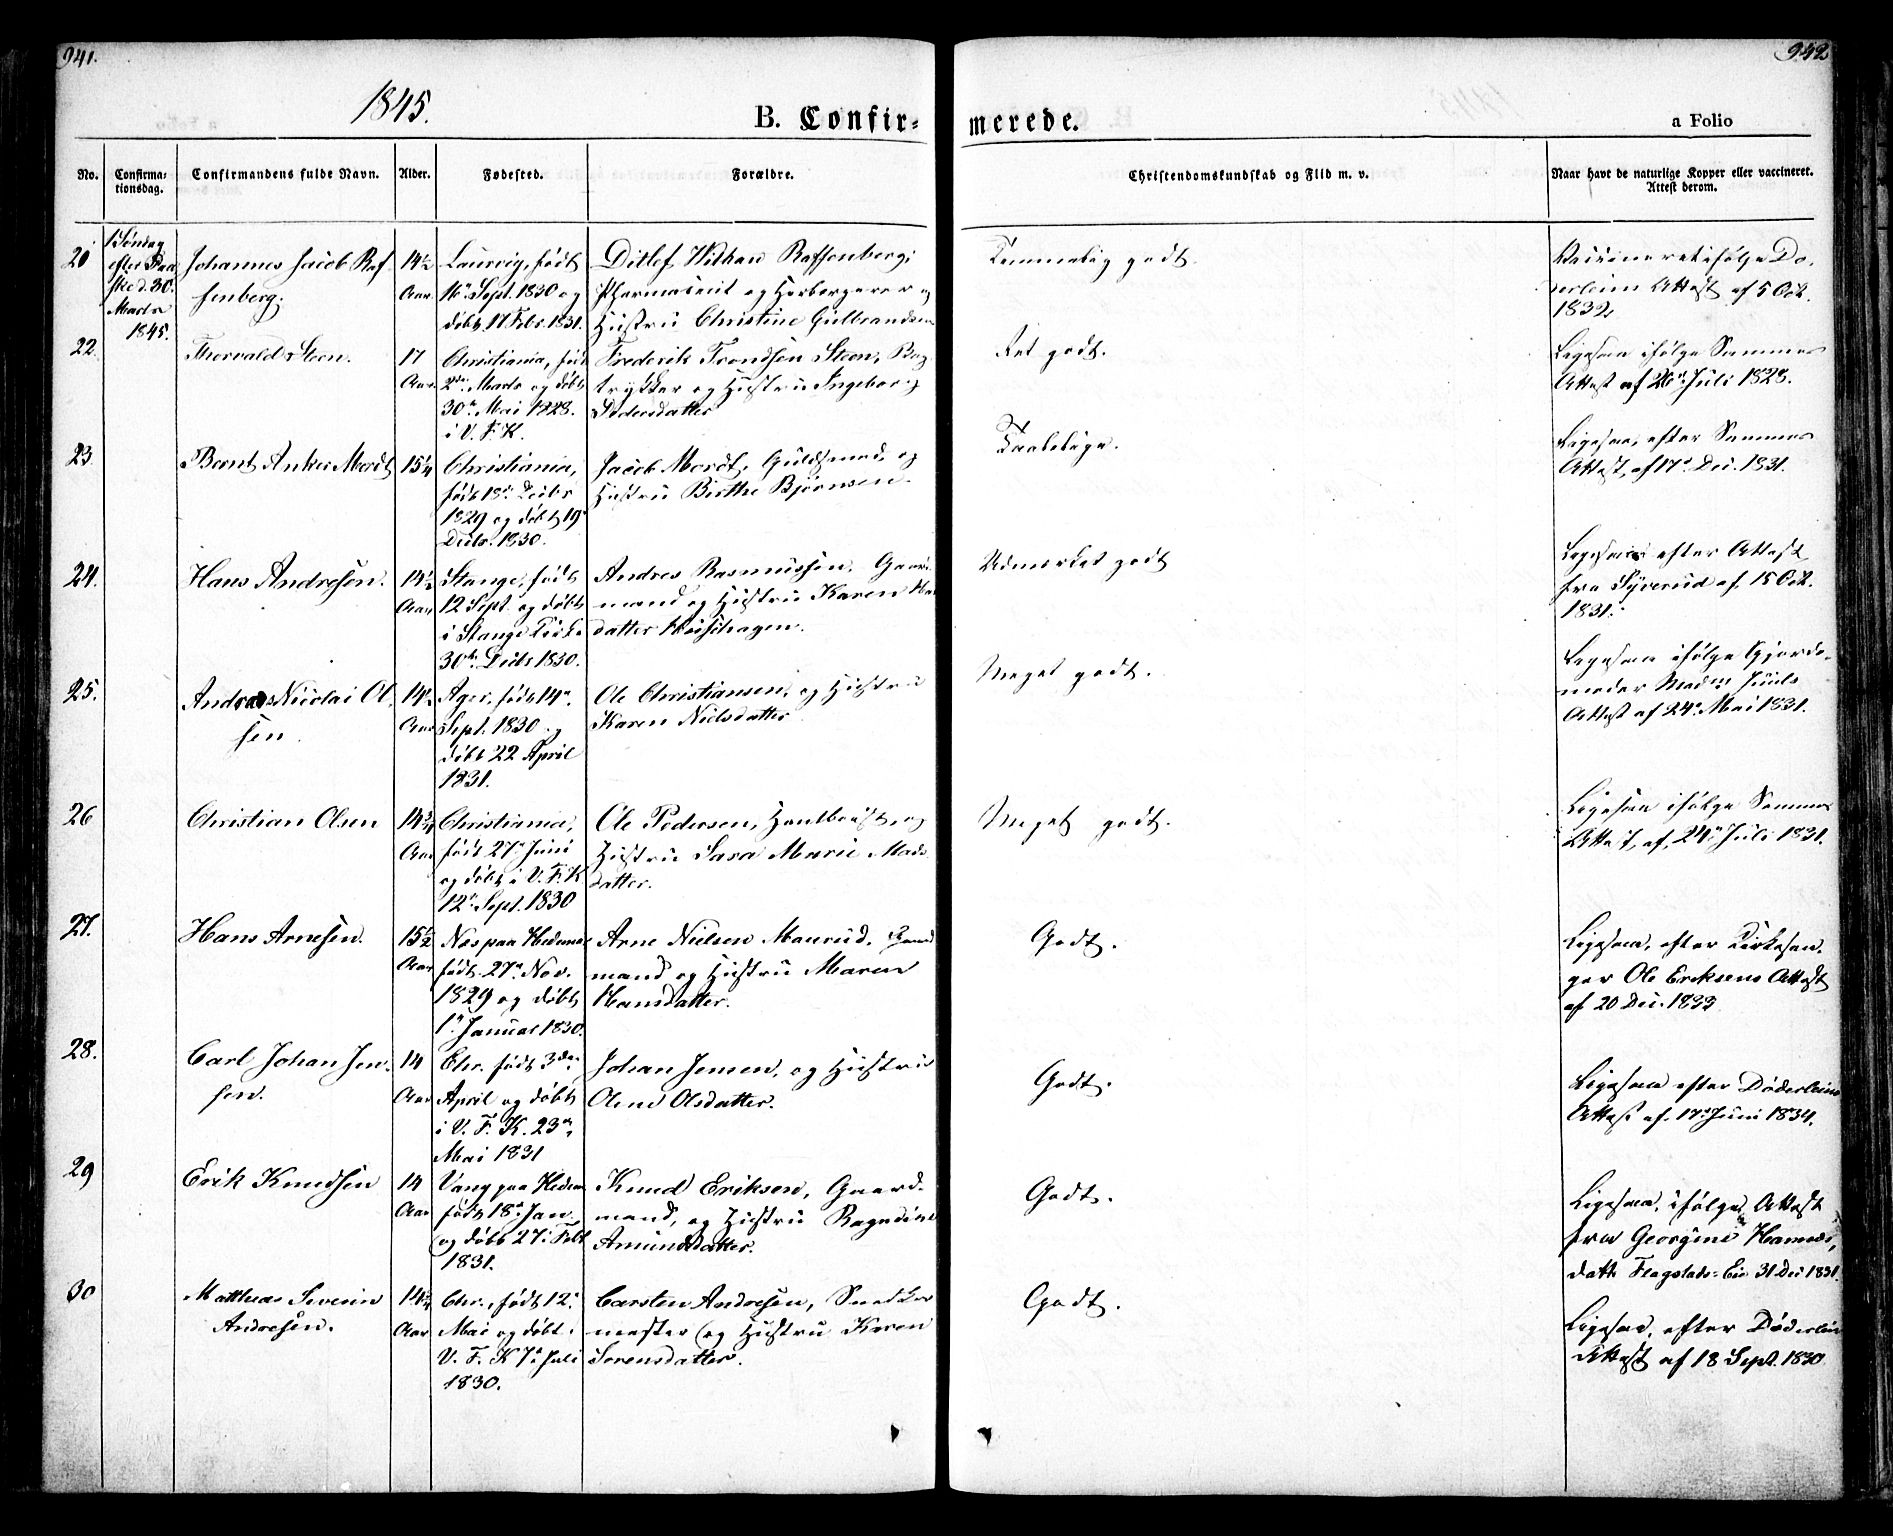 941.
942
1845.
B. Confir-
merede.
a Folio
No.
Confirma-
tionsdag.
Confirmandens fulde Navn.
Alder.
Fødested.
Forældre.
Christendomskundskab og Flid m. v.
Naar havt de naturlige Kopper eller vaccineret.
Attest derom.
1 Søndag
efter Paa
ske d. 30.
Marts
1845.
21
Johannes Jacob Raf
fenberg.
14½
Aar.
Laurvig, født
16n Sept. 1830 og
døbt 17 Febr. 1831.
Ditlef Withan Raffenberg,
Pharmaceut og Herbergerer og
Hustru Christine Gulbrandsen
Temmelig godt.
Vaccineret ifølge Dø-
derleins Attest af 5 Oct.
1832
22.
Thorvald Steen.
17
Aar.
Christiania, født
2den Marts og døbt
30n Mai 1828.
i V. F. K.
Frederik Trondsen Steen, Bog
trykker og Hustru Ingeborg
Pedersdatter
Ret godt.
Ligesaa ifølge Sammes
Attest af 26n Juli 1828.
23
Bernt Anker Merdt
15¼
Christiania,
født 18n Decbr
1829 og døbt 19n
Decbr. 1830.
Jacob Merdt, Guldsmed, og
Hustru Birthe Bjørnsen.
Taalelige.
Ligesaa, efter Sammes
Attest, af 17n Dec. 1831.
24.
Hans Andresen.
14½
Aar
Stange, født
12 Sept. og døbt
i Stange Kirke
30n Decbr 1830.
Andres Rasmussen, Gaard
mand og Hustru Karen
datter
Udmærket godt
Ligesaa efter Attest
fra Syverud af 15 Oct.
1831.
25.
Andreas Nicolai Ol
sen.
14½
Aar
Ager, født 14n
Sept. 1830 og
døbt 22 April
1831.
Ole Christiansen, og Hustru
Karen Nielsdatter
Meget godt.
Ligesaa ifølge Gjorde-
moder Madm Juuls
Attest af 24n Mai 1831.
26
Christian Olsen
14¾
Aar
Christiania,
født 27n Juni
og døbt i V. F. K
12n Sept. 1830
Ole Pedersen, og
Hustru Sara Marie Mads
datter.
Meget godt.
Ligesaa ifølge Sammes
Attest, af 24n Juli 1831.
27.
Hans Arnesen.
15½
Aar
Næs paa Hedema
født 27n Nov.
1829 og døbt
1n Januar 1830.
Arne Nielsen Maurud, Gaard
mand og Hustru Maren
Hansdatter.
Godt.
Ligesaa, efter Kirkesan-
ger Ole Eriksens Attest
af 20 Dec. 1833
28.
Carl Johan Jen-
sen.
14
Aar
Chr. født 3den
April og døbt
i V. F. K. 23n
Mai 1831
Johan Jensen, og Hustru
Olene Olsdatter.
Godt.
Ligesaa efter Døderleins
Attest af 17n Juni 1834.
29
Erik Knudsen
14
Aar
Vang paa Hedem
født 18n Jan.
og døbt 27n Febr
1831.
Knud Eriksen, Gaard-
mand, og Hustru Ragndine
Amundsdatter.
Godt.
Ligesaa, ifølge Attest
fra Georgine Hannes
datter Flagstads-Eie 31 Dec 1831.
30
Matthias Severin
Andresen.
14¾
Aar
Chr., født 12n
Mai og døbt i
V. F. K 7n Juli
1830.
Carsten Andresen, Snedker
mester og Hustru Karen
Sorensdatter.
Godt.
Ligesaa, efter Døderleins
Attest af 18 Sept. 1830